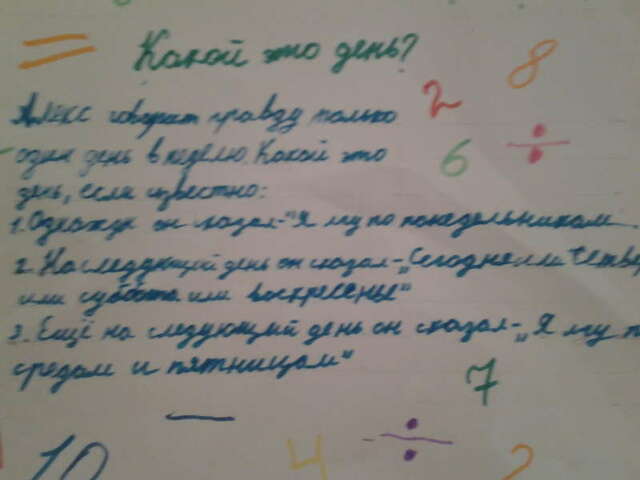 Какой это день?
8
2
Алекс говорит правду только
один день в неделю. Какой это
6
день, если известно:
1. Однажды он сказал-"Я лгу по понедельникам
2. На следующий день он сказал-„Сегодня или Четве
или суббота или воскресенье"
3. Ещё на следующий день он сказал-„Я лгу п
средам и пятницам"
7
10
4
2